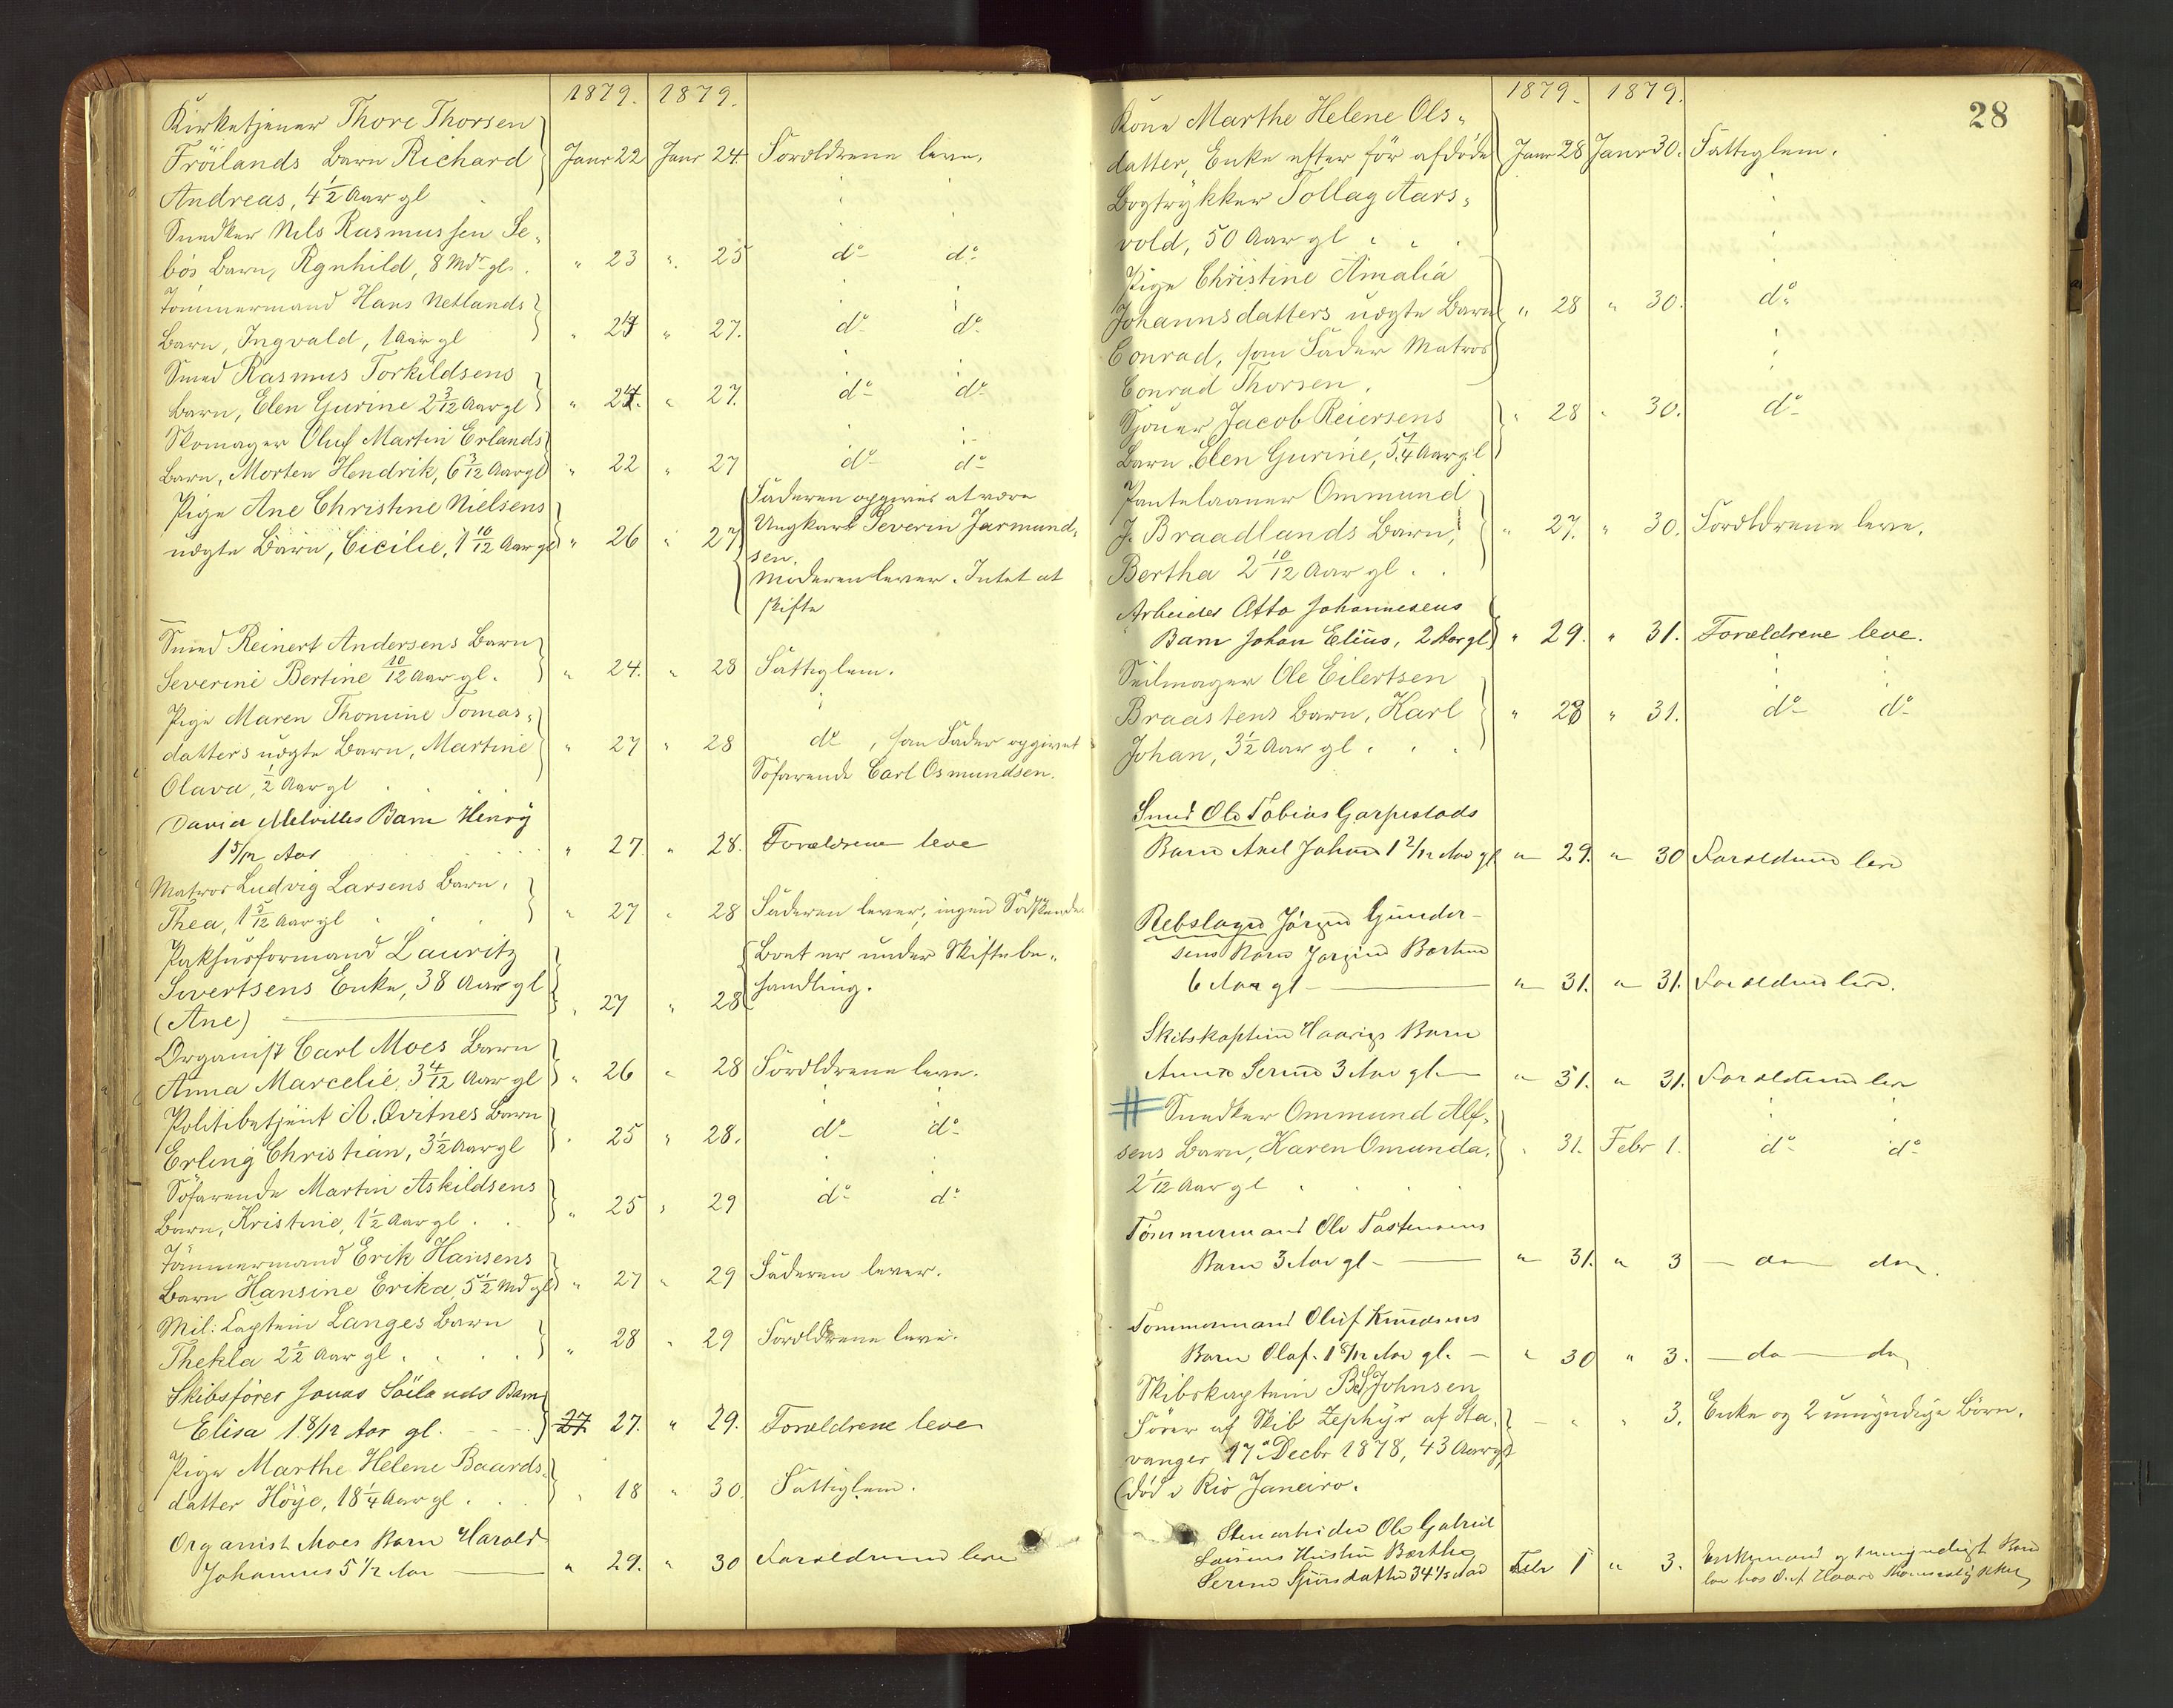 1879. 1879.
Kirketjener Thore Thorsen
Fröilands Barn Richard Janr 22 Janr 24 Forældrene leve.
Andreas, 4 1/2 Aar gl
Snedker Nils Rasmussen Se„
bös Barn, Rgnhild, 8 Md gl. " 23 " 25 do do
Tömmermand Hans Netlands
Barn, Ingvald, 1 Aar gl " 24 " 27. do do
Smed Rasmus Torkildsens
Barn, Elen Gurine 2 3/12 Aar gl " 24. " 27. do do
Skomager Oluf Martin Erlands
Barn, Morten Hendrik, 6 3/12 Aar gl " 22 " 27 do do
Pige Ane Christine Nielsens Faderen opgives at være
uægte Barn, Cicilie, 1 10/12 Aar gl " 26 " 27 Ungkarl Severin Jarmund„
sen.
Moderen lever. Intet at
skifte
Smed Reinert Andersens Barn
Severine Bertine 10/12 Aar gl. " 24. " 28 Fattiglem.
Pige Maren Thomine Tomas„
datters uægte Barn, Martine " 27 " 28 do, som Fader opgivet
Olava, 1/2 Aar gl Söfarende Carl Osmundsen.
David Melvilles Barn Henry
1 5/12 Aar " 27 " 28. Forældrene leve
Matros Ludvig Larsens Barn,
Thea, 1 5/12 Aar gl " 27 " 28 Faderen lever, ingen Södskende
Pakhusformand Lauritz Boet er under Skiftebe„
Sivertsens Enke, 38 Aar gl " 27 " 28 handling.
(Ane)
Organist Carl Moes Barn
Anna Marcelie, 3 4/12 Aar gl " 26 " 28 Forældrene leve.
Politibetjent A. Qvitnes Barn
Erling Christian, 3 1/2 Aar gl " 25 " 28. do do
Söfarende Martin Askildsens
Barn, Kristine, 1 1/2 Aar gl. " 25 " 29 do do
Tömmermand Erik Hansens
Barn Hansine Erika, 5 1/2 Md gl " 27 " 29 Faderen lever.
Mil: Captein Langes Barn
Thekla 2 1/2 Aar gl. " 28 " 29 Forældrene leve.
Skibsförer Jonas Söilands Barn
Elisa 1 8/12 Aar gl. 27 27. " 29. Forældrene leve
Pige Marthe Helene Baards„
datter Höye, 18 1/4 Aar gl. " 18 " 30. Fattiglem.
Organist Moes Barn Harald
Johannes 5 1/2 Aar " 29. " 30 Forældrene leve
28
1879. 1879.
Kone Marthe Helene Ols„
datter, Enke efter för afdöde Janr 28 Janr 30. Fattiglem.
Bogtrykker Tollag Aars„
vold, 50 Aar gl
Pige Christine Amalia
Johannsdatters uægte Barn " 28 " 30. do
Conrad, som Fader Matros
Conrad Thorsen.
Sjöuer Jacob Reiersens " 28 " 30. do
Barn Elen Gurine, 5 1/4 Aar gl
Pantelaaner Ommund
J. Braadlands Barn, " 27. " 30. Forældrene leve.
Bertha 2 10/12 Aar gl.
Arbeider Otto Johannesens
Barn Johan Elius, 2 Aar gl " 29. " 31. Forældrene leve.
Seilmager Ole Eilertsen
Braastens Barn, Karl " 28 " 31. do do
Johan, 3 1/2 Aar gl.
Smed Ole Tobias Garpestads
Barn Axel Johan 1 2/12 Aar gl " 29. " 30 Forældrene leve
Rebslager Jörgen Gunder-
sens Barn Jorgine Bertine
6 Aar gl " 31. " 31. Forældrene leve.
Skibskaptein Haavigs Barn
Anna Serine 3 Aar gl " 31. " 31. Forældrene leve
# Snedker Ommund Alf„
sens Barn, Karen Omunda, " 31. Febr 1. do do
2 1/12 Aar gl
Tömmermand Ole Tastensens
Barn 3 Aar gl. " 31. " 3 do do
Tömmermand Oluf Knudsens
Barn Olaf. 1 8/12 Aar gl. " 30 " 3. do do
Skibskaptein B. S. Johnsen
Förer af Skib Zephyr af Sta„ " " 3. Enke og 2 umyndige Börn.
vanger 17 Decbr 1878, 43 Aar gl
(död i Rio Janeiro.
Stenarbeider Ole Gabriel
Larsens Hustru Berthe Febr 1 " 3. Enkemand og 1 umyndigt Barn
Serine datter 34 1/2 Aar bor hos Oluf Haave